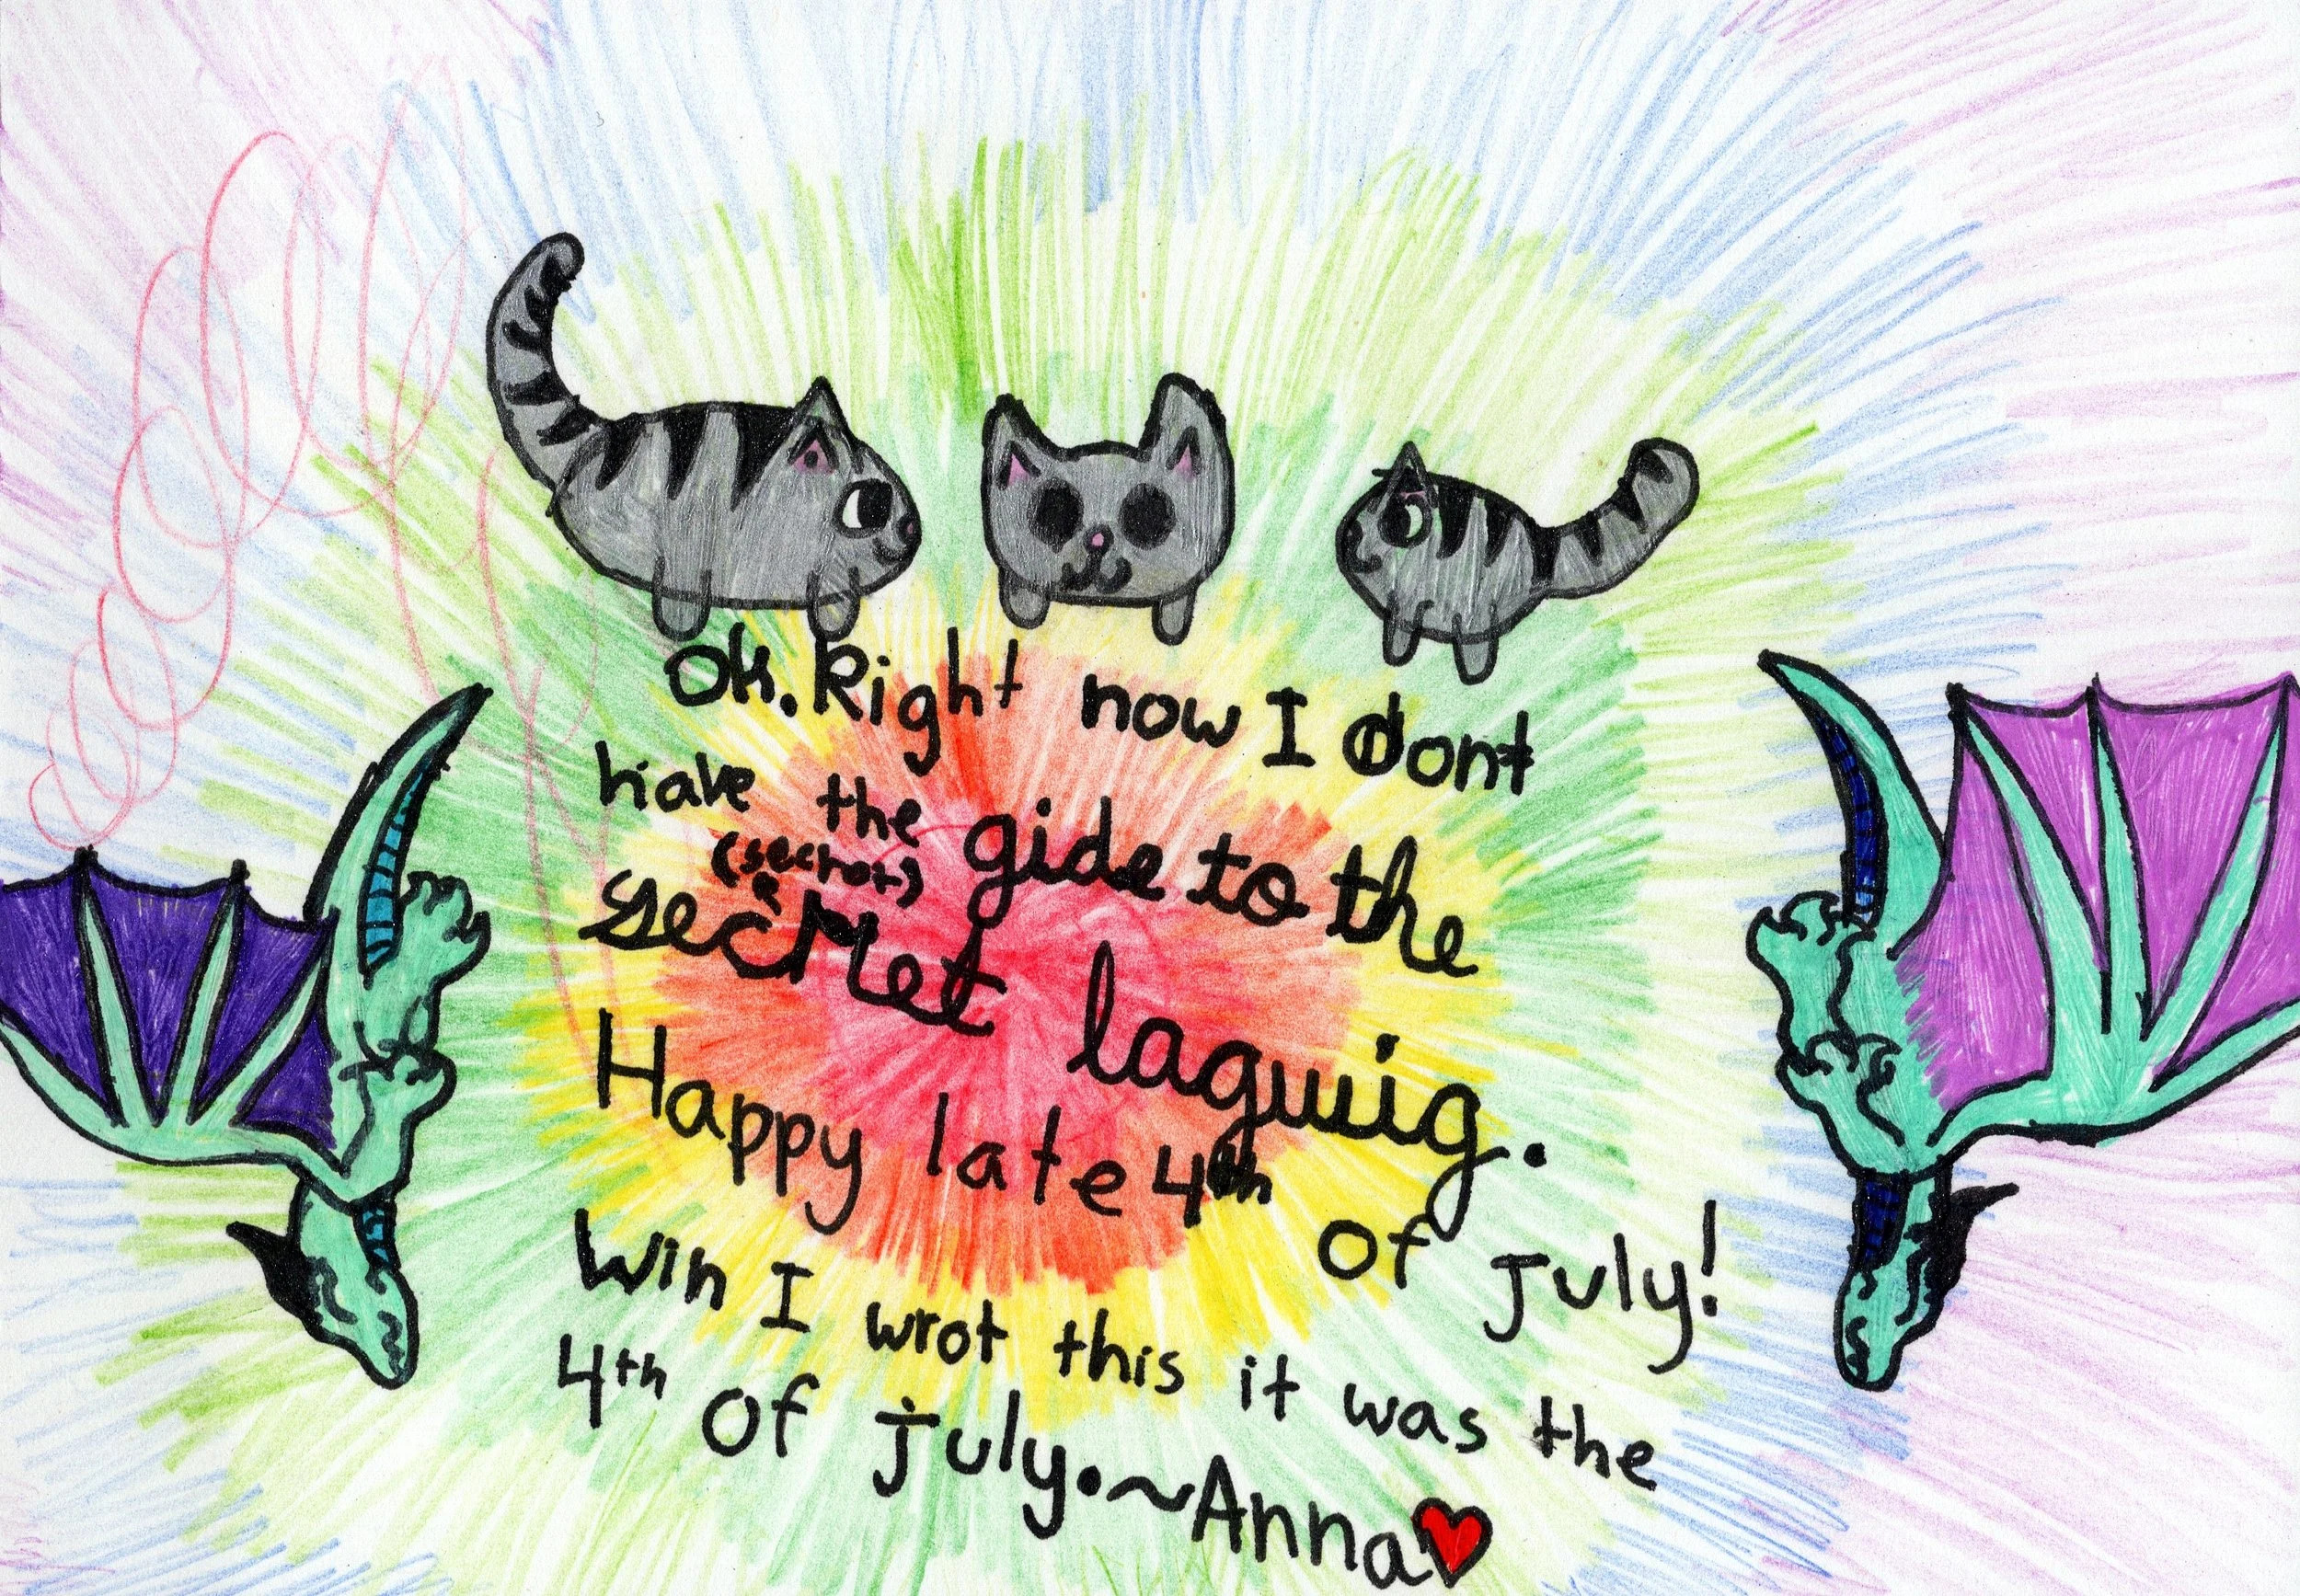 Ok. Right now I dont
have the gide to the
(secret)
secret laguig.
Happy late 4th of july!
Win I wrot this it was the
4th of july. ~Anna